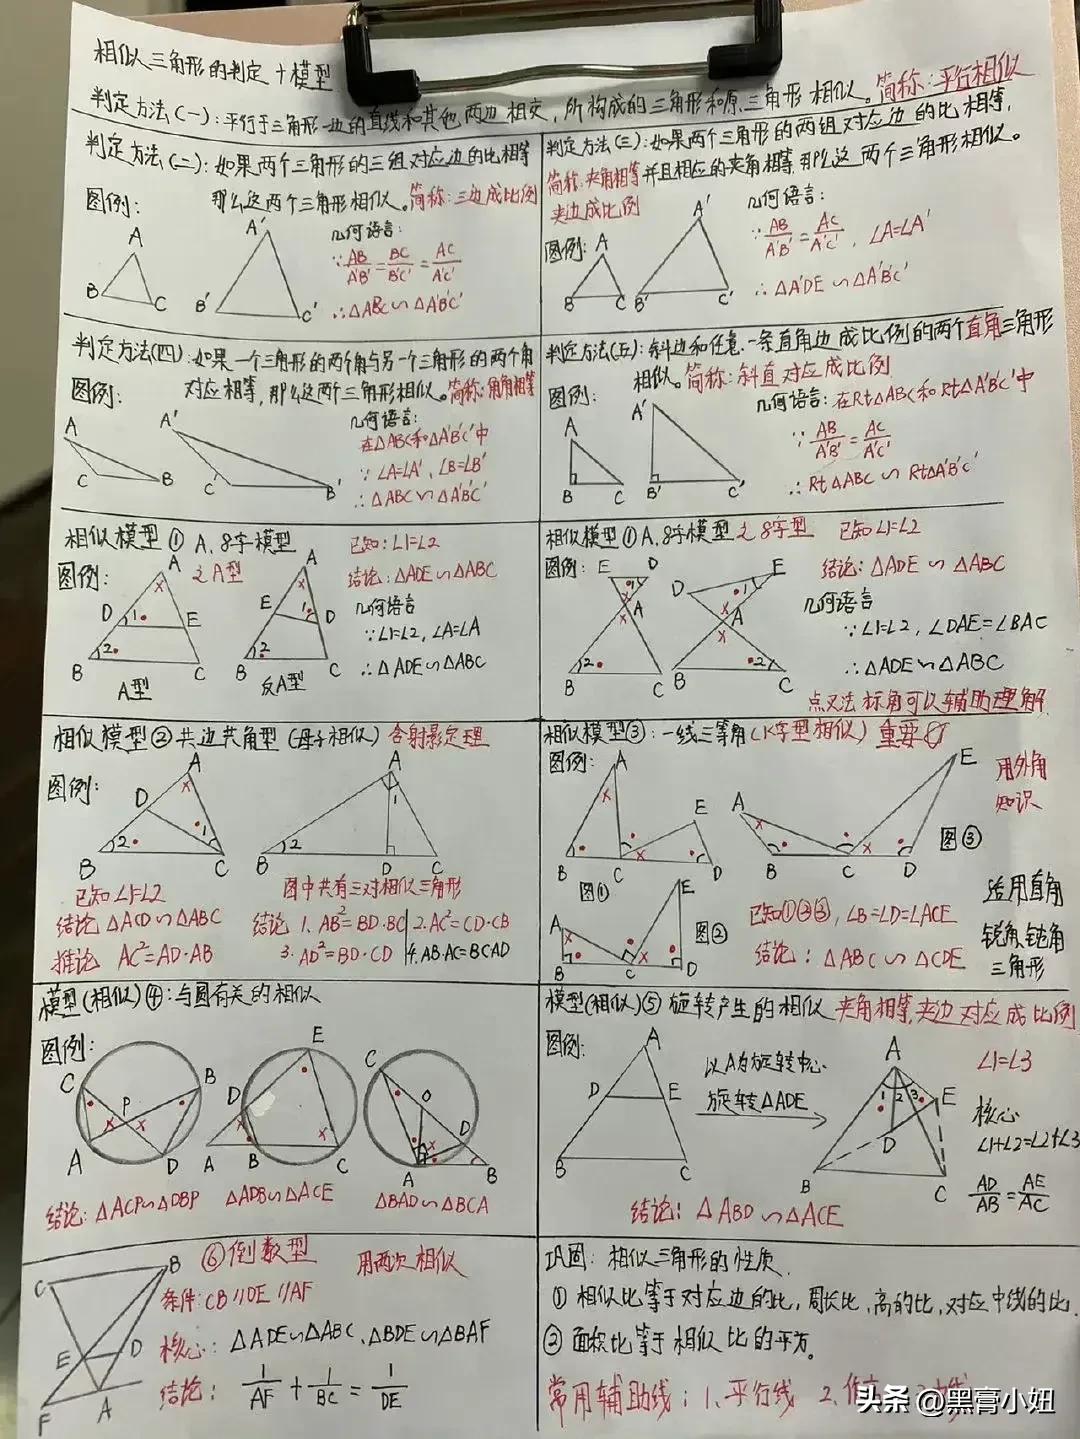 相似三角形的判定+模型
判定方法(一):平行于三角形一边的直线和其他两边相交,所构成的三角形和原三角形相似。简称:平行相似
判定方法(二):如果两个三角形的三组对应边的比相等
那么这两个三角形相似。简称:三边成比例
图例:
A
B
C
A'
B'
C'
几何语言:
∵AB/A'B'=BC/B'C'=AC/A'C'
∴△ABC∽△A'B'C'
判定方法(三):如果两个三角形的两组对应边的比相等,
简称:夹角相等并且相应的夹角相等,那么这两个三角形相似。
夹边成比例
图例:
A
B
C
A'
B'
C'
几何语言:
∵AB/A'B'=AC/A'C',∠A=∠A'
∴△A'DE∽△A'B'C'
判定方法(四):如果一个三角形的两个角与另一个三角形的两个角
对应相等,那么这两个三角形相似。简称:角角相等
图例:
A
C
B
A'
C'
B'
几何语言:
在△ABC和△A'B'C'中
∵∠A=∠A',∠B=∠B'
∴△ABC∽△A'B'C'
判定方法(五):斜边和任意一条直角边成比例的两个直角三角形
相似。简称:斜直对应成比例
图例:
A
B
C
A'
B'
C'
几何语言:在Rt△ABC和Rt△A'B'C'中
∵AB/A'B'=AC/A'C'
∴Rt△ABC∽Rt△A'B'C'
相似模型①A、8字模型
之A型
图例:
A
D
1
E
B
2
C
A型
A
E
1
D
B
2
C
反A型
已知:∠1=∠2
结论:△ADE∽△ABC
几何语言
∵∠1=∠2,∠A=∠A
∴△ADE∽△ABC
相似模型①A、8字模型之8字型 已知∠1=∠2
图例:
E
D
1
A
B
2
C
D
E
1
A
B
2
C
结论:△ADE∽△ABC
几何语言
∵∠1=∠2,∠DAE=∠BAC
∴△ADE∽△ABC
点叉法标角可以辅助理解
相似模型②共边共角型(母子相似)含射影定理
图例:
A
D
1
B
2
C
A
1
B
2
D
C
已知∠1=∠2
结论△ACD∽△ABC
推论 AC²=AD·AB
图中共有三对相似三角形
结论 1.AB²=BD·BC 2.AC²=CD·CB
3.AD²=BD·CD 4.AB·AC=BC·AD
相似模型③:一线三等角(K字型相似)重要
图例:
A
E
B
C
D
图①
A
E
B
C
D
图②
A
E
B
C
D
图③
用外角
知识
适用直角
锐角、钝角
三角形
已知①②③,∠B=∠D=∠ACE
结论:△ABC∽△CDE
模型(相似)④:与圆有关的相似
图例:
C
B
P
A
D
E
D
A
B
C
C
O
D
A
B
结论:△ACP∽△DBP △ADB∽△ACE △BAD∽△BCA
模型(相似)⑤旋转产生的相似 夹角相等,夹边对应成比例
图例:
A
D
E
B
C
以A为旋转中心
旋转△ADE
A
1
2
3
E
D
B
C
∠1=∠3
核心
∠1+∠2=∠2+∠3
AD/AB=AE/AC
结论:△ABD∽△ACE
⑥倒数型 用两次相似
C
B
E
D
F
A
条件:CB∥DE∥AF
核心:△ADE∽△ABC、△BDE∽△BAF
结论:1/AF+1/BC=1/DE
巩固:相似三角形的性质
①相似比等于对应边的比,周长比,高的比,对应中线的比.
②面积比等于相似比的平方。
常用辅助线:1、平行线 2、作
头条@黑膏小妞